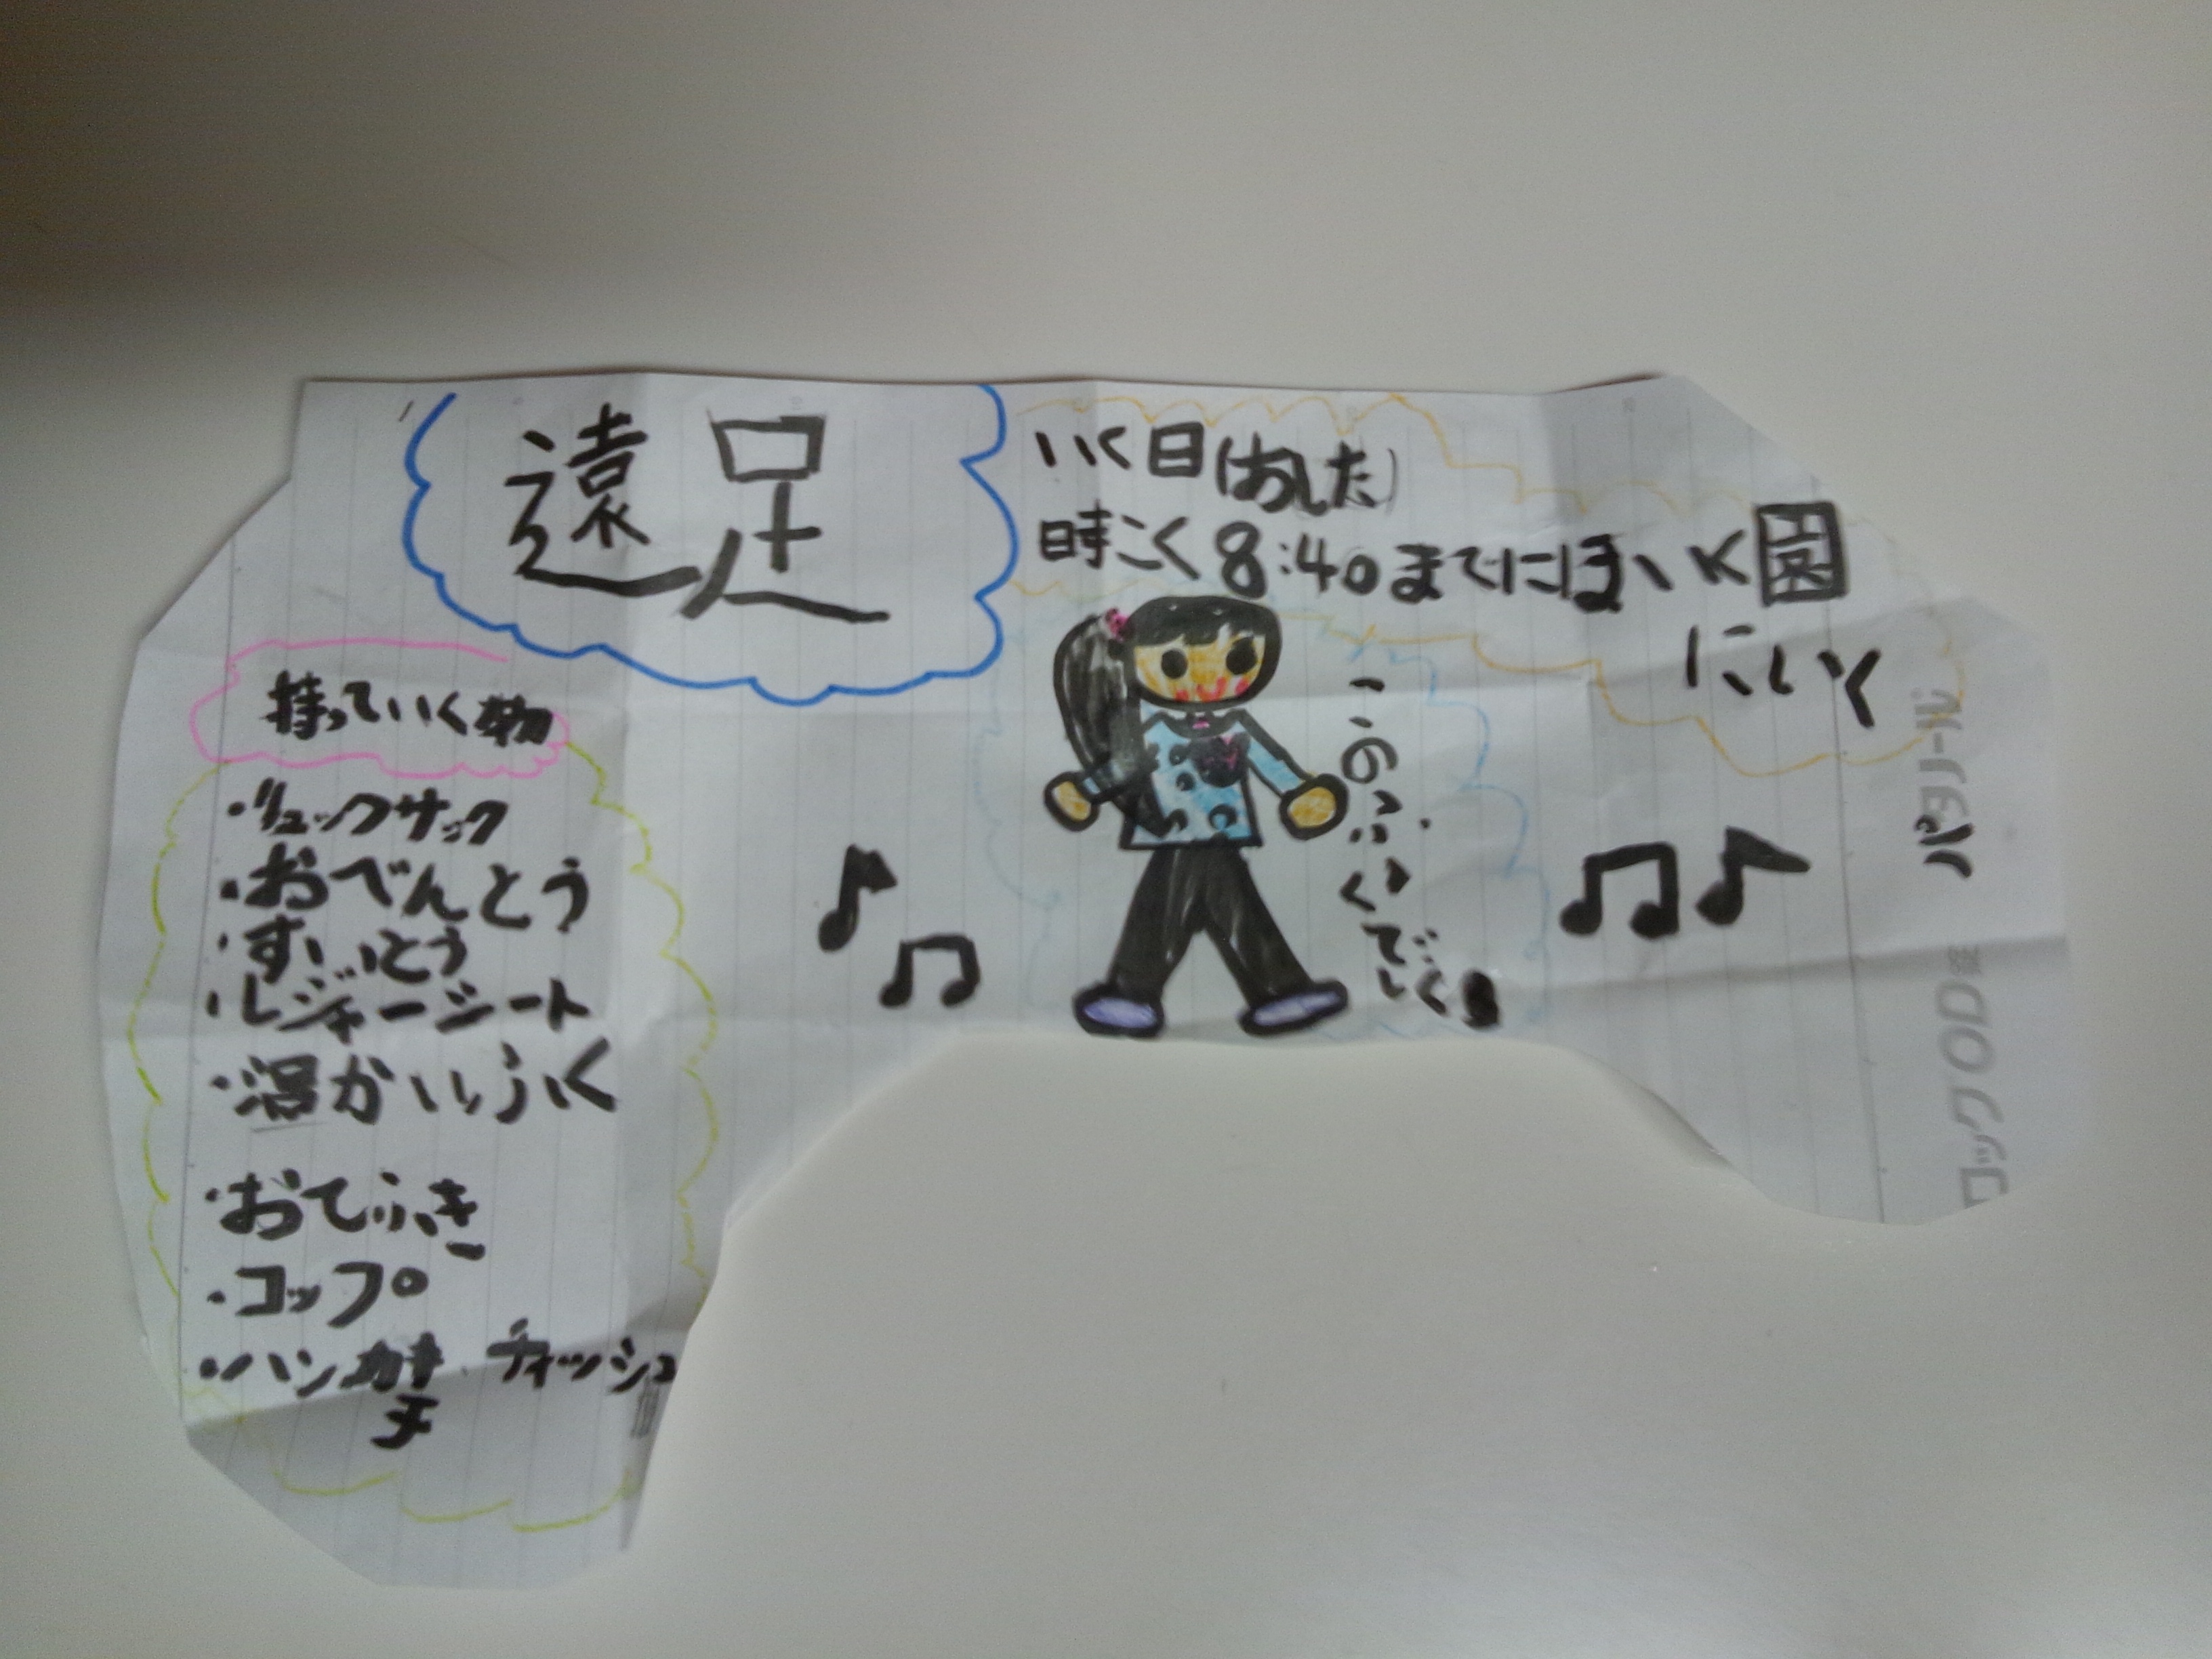 遠足
いく日(あした)
時こく8:40までにほいく園
にいく
持っていく物
・リュックサック
・おべんとう
・すいとう
・レジャーシート
・温かいふく
・おてふき
・コップ
・ハンカチ ティッシュ
このふくで
いく